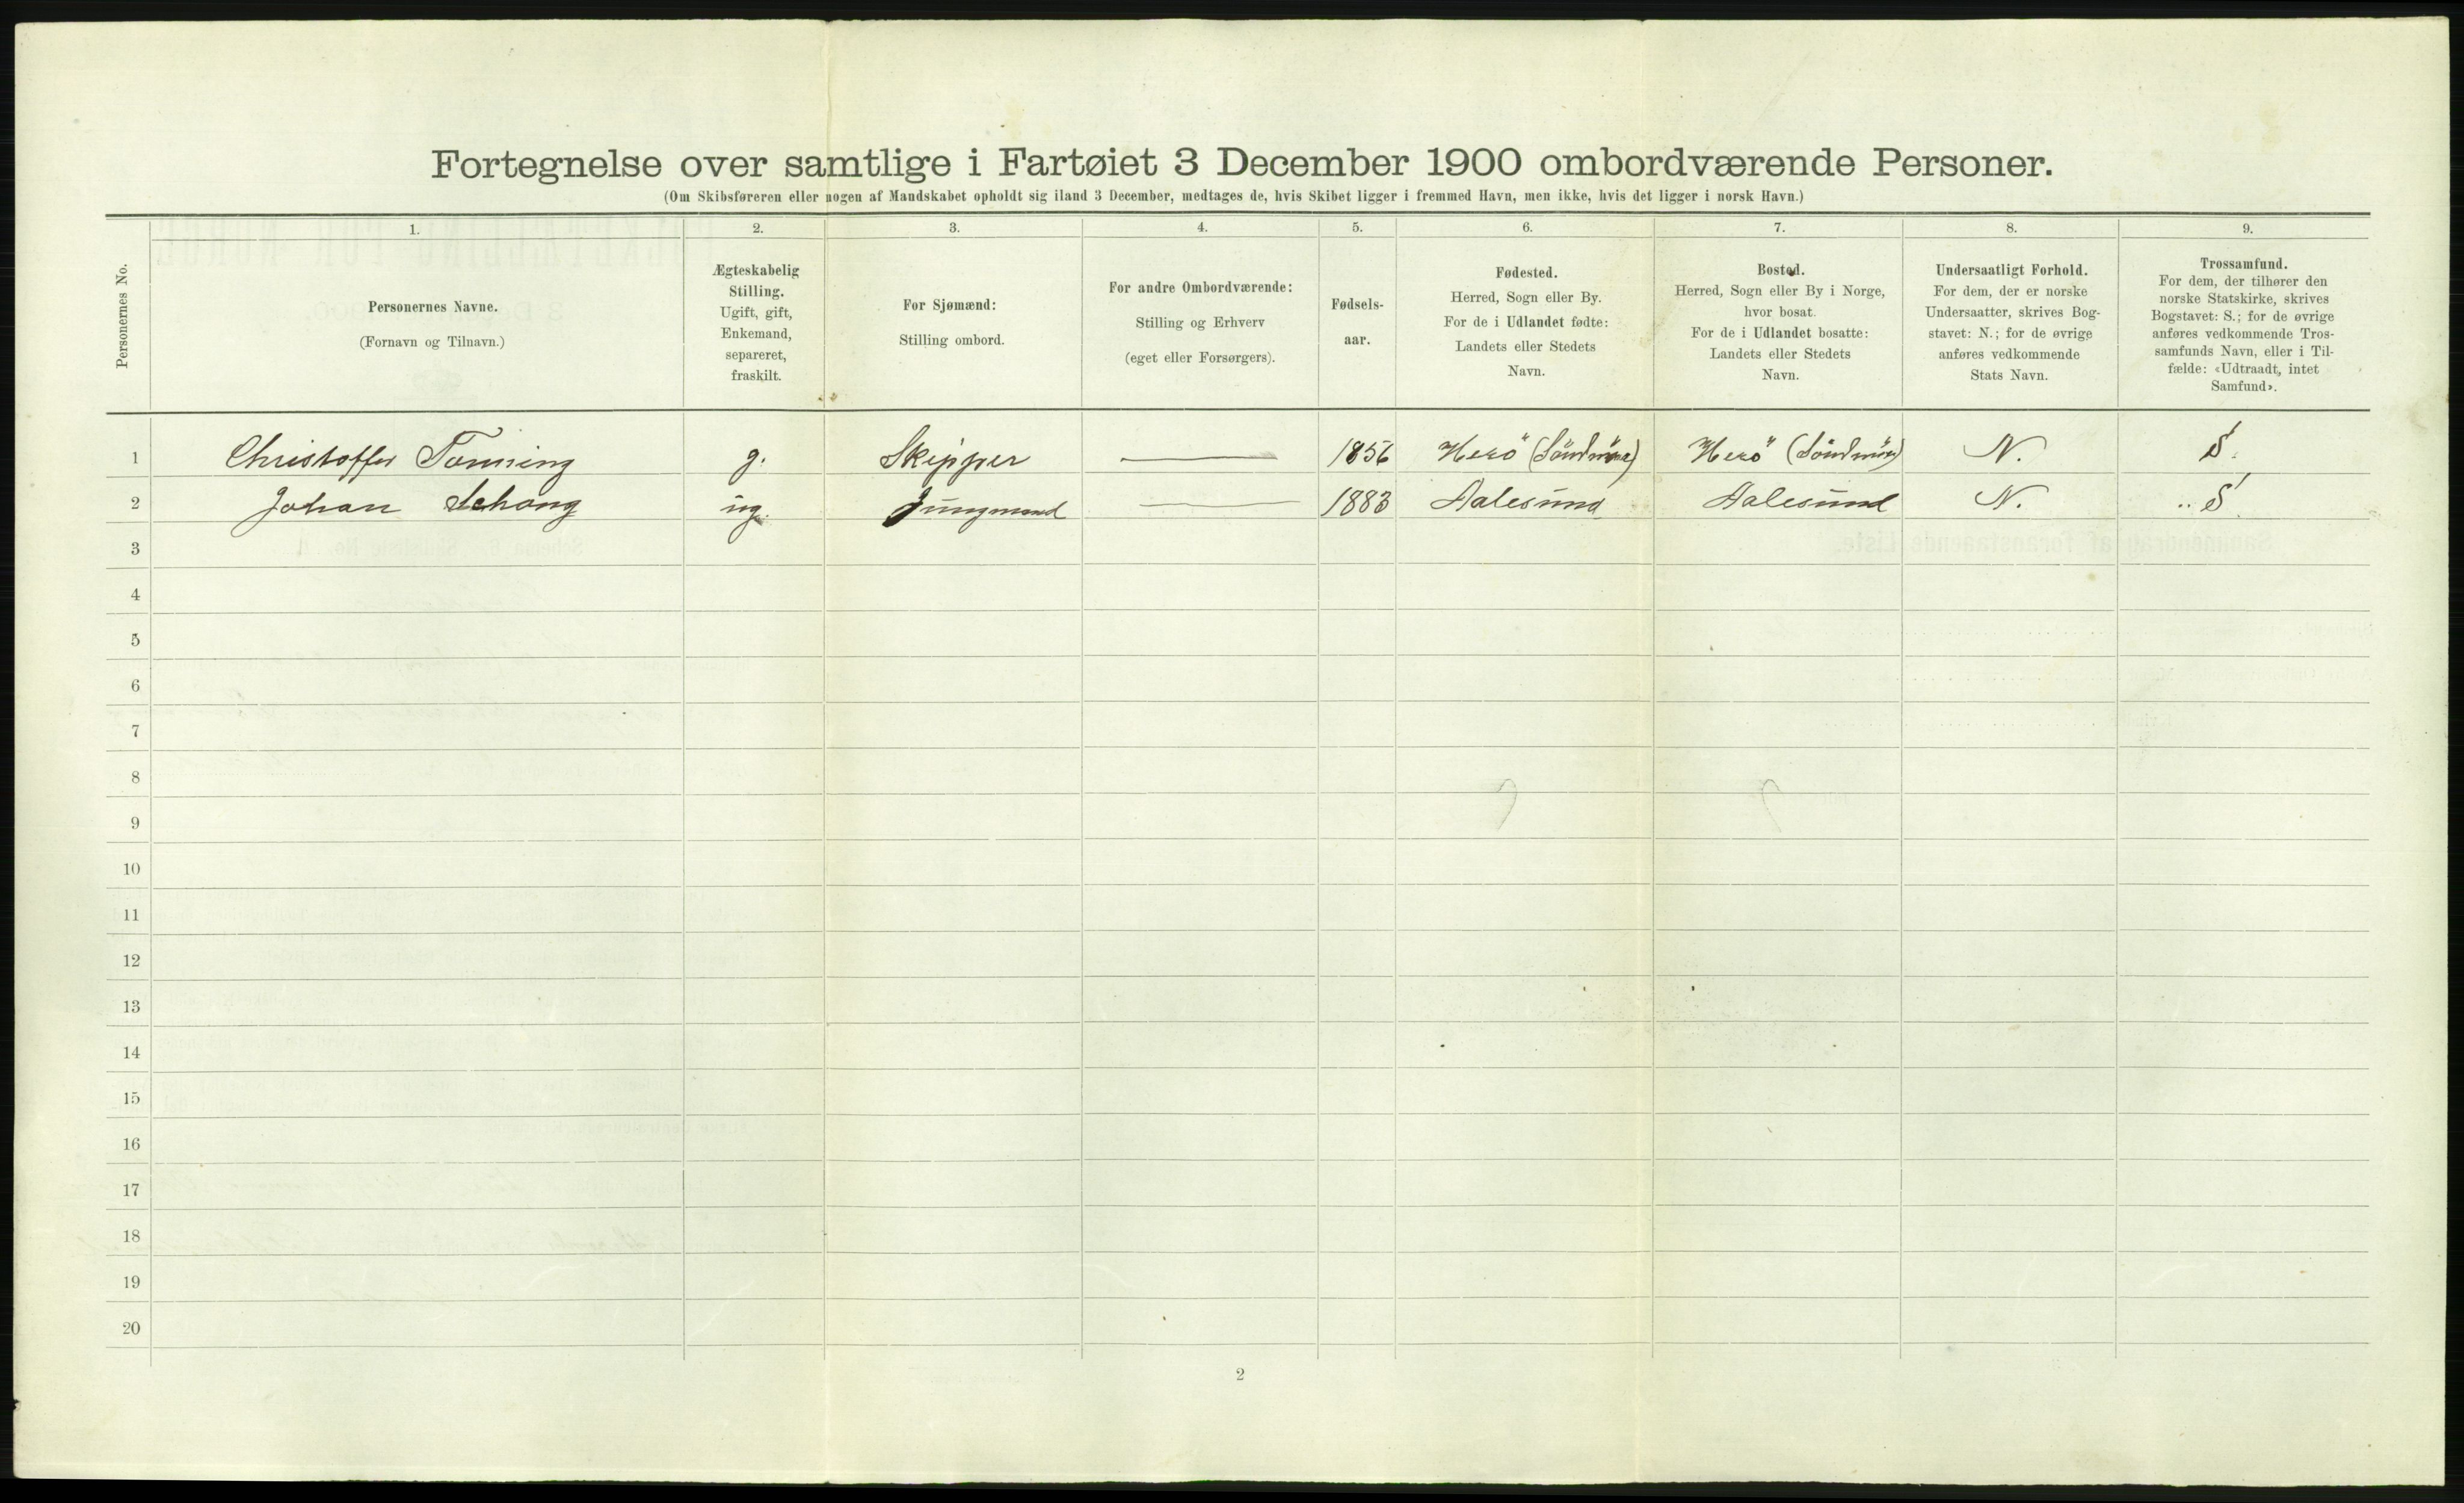 Fortegnelse over samtlige i Fartøiet 3 December 1900 ombordværende Personer.
(Om Skibsføreren eller nogen af Mandskabet opholdt sig iland 3 December, medtages de, hvis Skibet ligger i fremmed Havn, men ikke, hvis det ligger i norsk Havn.)
Personernes No.
1.
Personernes Navne.
(Fornavn og Tilnavn.)
2.
Ægteskabelig
Stilling.
Ugift, gift,
Enkemand,
separeret,
fraskilt.
3.
For Sjømænd:
Stilling ombord.
4.
For andre Ombordværende:
Stilling og Erhverv
(eget eller Forsørgers).
5.
Fødsels-
aar.
6.
Fødested.
Herred, Sogn eller By.
For de i Udlandet fødte:
Landets eller Stedets
Navn.
7.
Bosted.
Herred, Sogn eller By i Norge,
hvor bosat.
For de i Udlandet bosatte:
Landets eller Stedets
Navn.
8.
Undersaatligt Forhold.
For dem, der er norske
Undersaatter, skrives Bog-
stavet: N.; for de øvrige
anføres vedkommende
Stats Navn.
9.
Trossamfund.
For dem, der tilhører den
norske Statskirke, skrives
Bogstavet: S.; for de øvrige
anføres vedkommende Tros-
samfunds Navn, eller i Til-
fælde: «Udtraadt, intet
Samfund».
1 Christoffer Tonning g. Skipper — 1856 Herö (Söndmöre) Herö (Söndmöre) N. S.
2 Johan Schong ug. Jungmand — 1883 Aalesund Aalesund N. S.
3
4
5
6
7
8
9
10
11
12
13
14
15
16
17
18
19
20
2